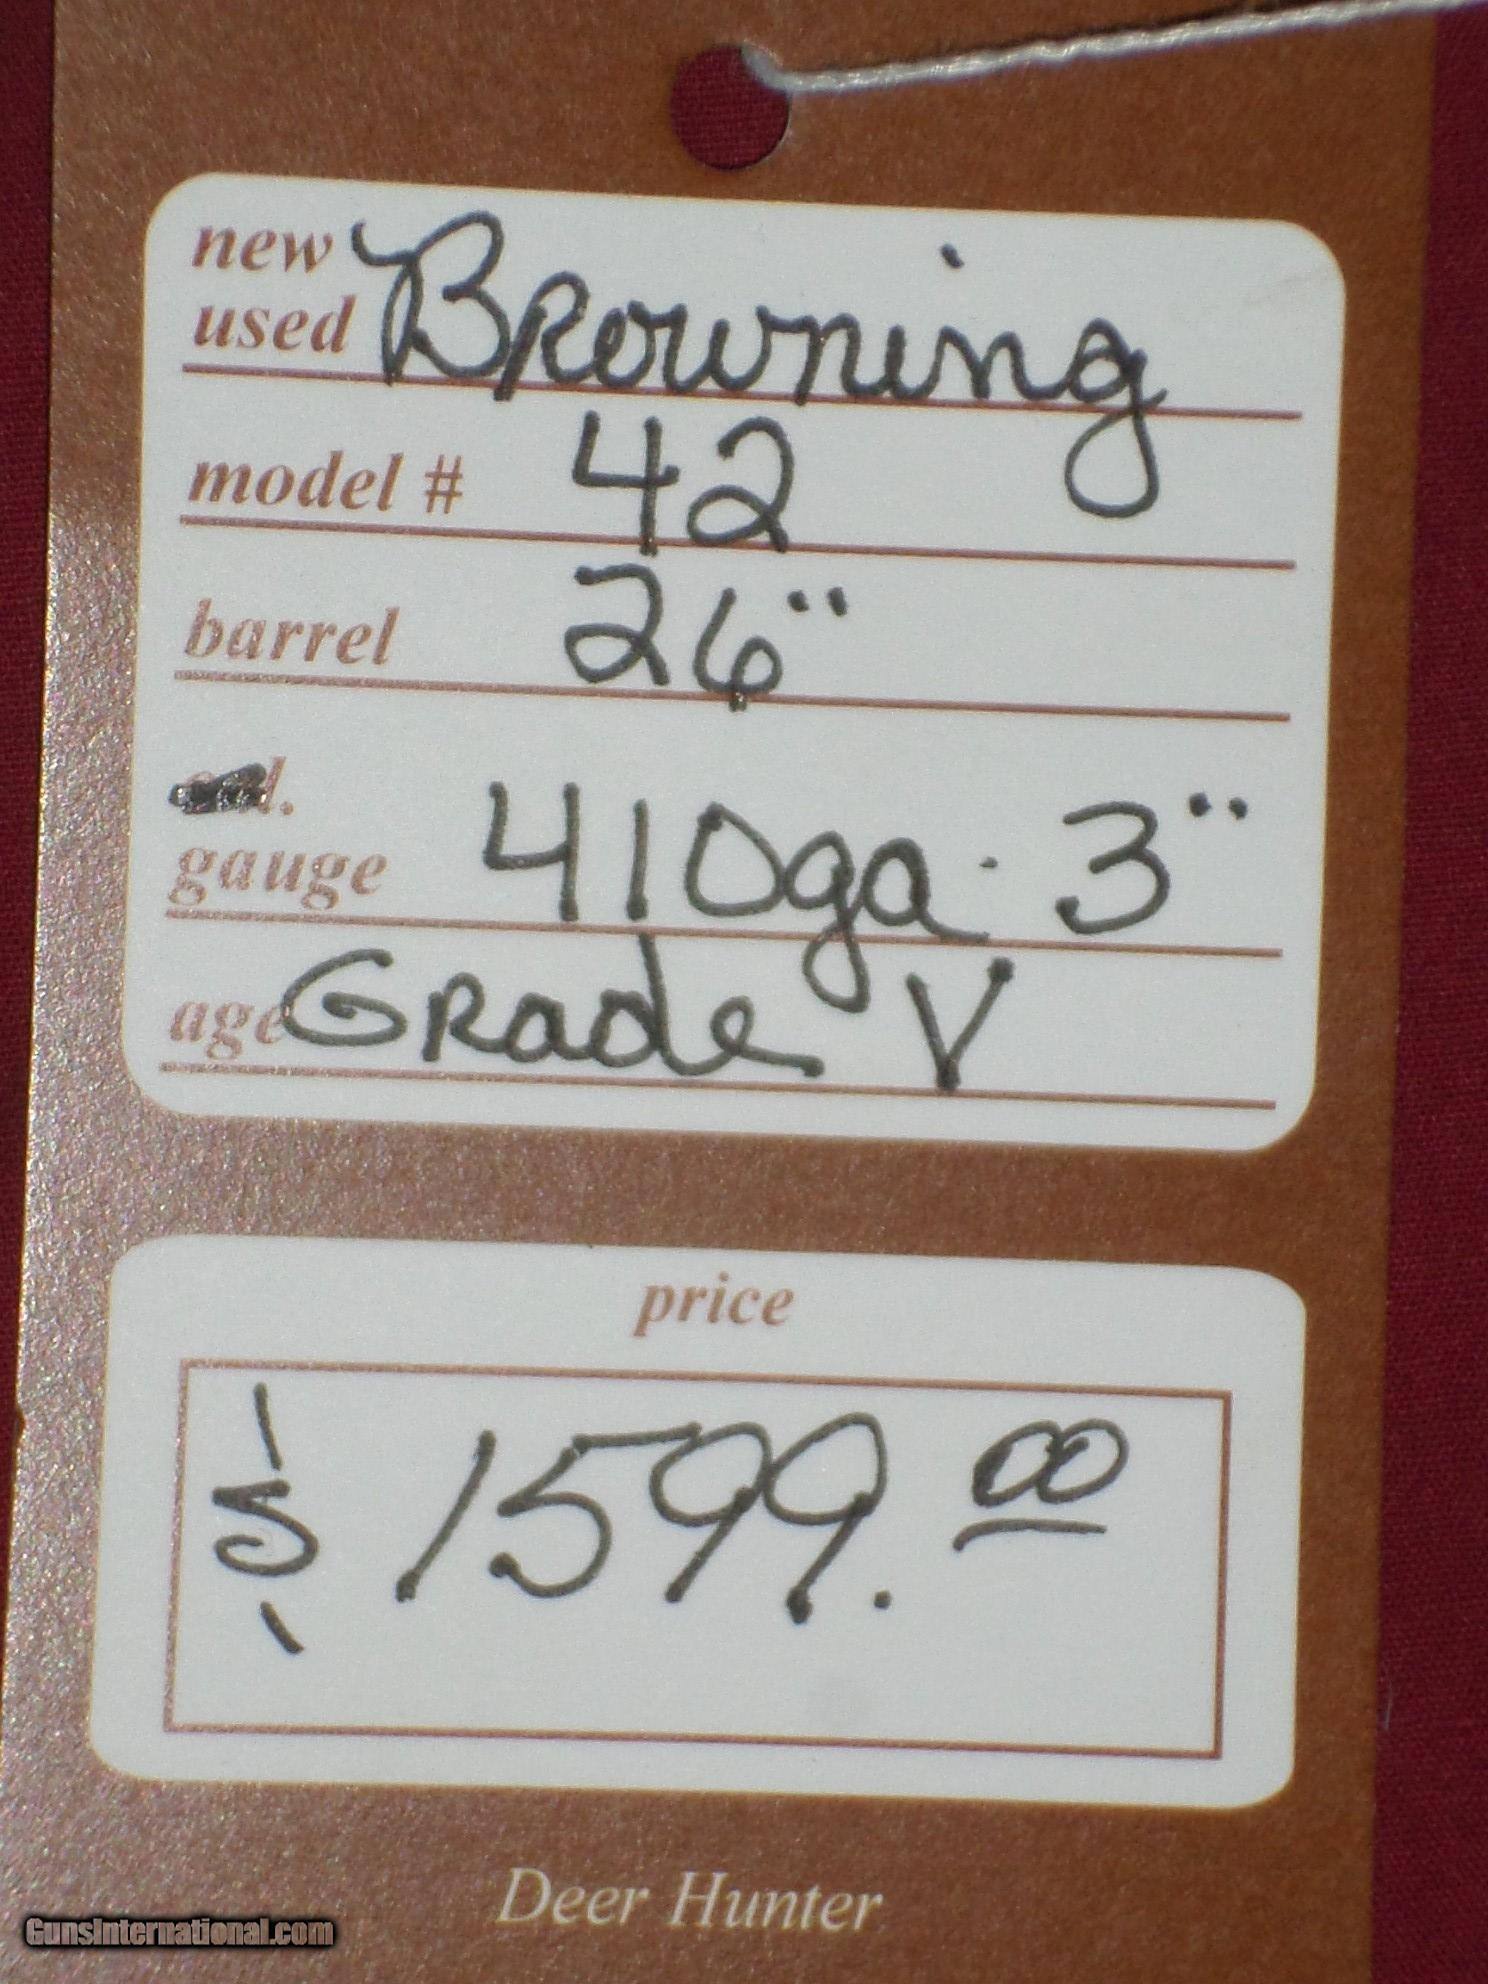 new
used Browning
model # 42
barrel 26"
gauge 410ga. 3"
age Grade V
price
$ 1599.00
Deer Hunter
GunsInternational.com